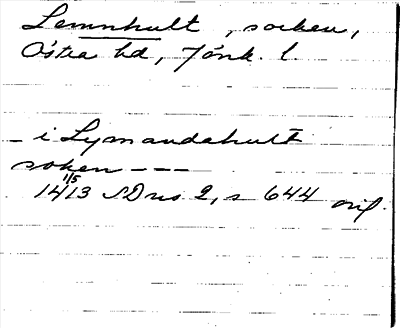 Lemnhult, socken,
Östra hd, Jönk. l.
– i Lymandahult
soken – – –
1/5
1413 SDns 2, s 644 orig.